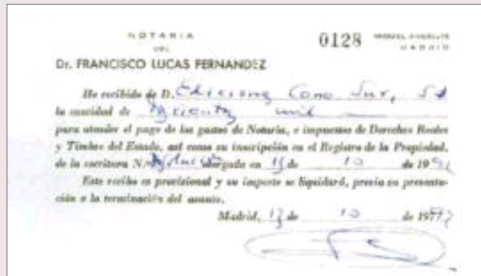 NOTARIA
DEL
Dr. FRANCISCO LUCAS FERNANDEZ
0128
MADRID
He recibido de D. Ediciones Cono Sur, S A
la cantidad de mil
para atender el pago de los gastos de Notaría, e impuestos de Derechos Reales
y Timbre del Estado, así como su inscripción en el Registro de la Propiedad,
de la escritura N.º otorgada en 13 de 10 de 19
Este recibo es provisional y su importe se liquidará, previa su presenta-
ción a la terminación del asunto.
Madrid, 13 de 10 de 19